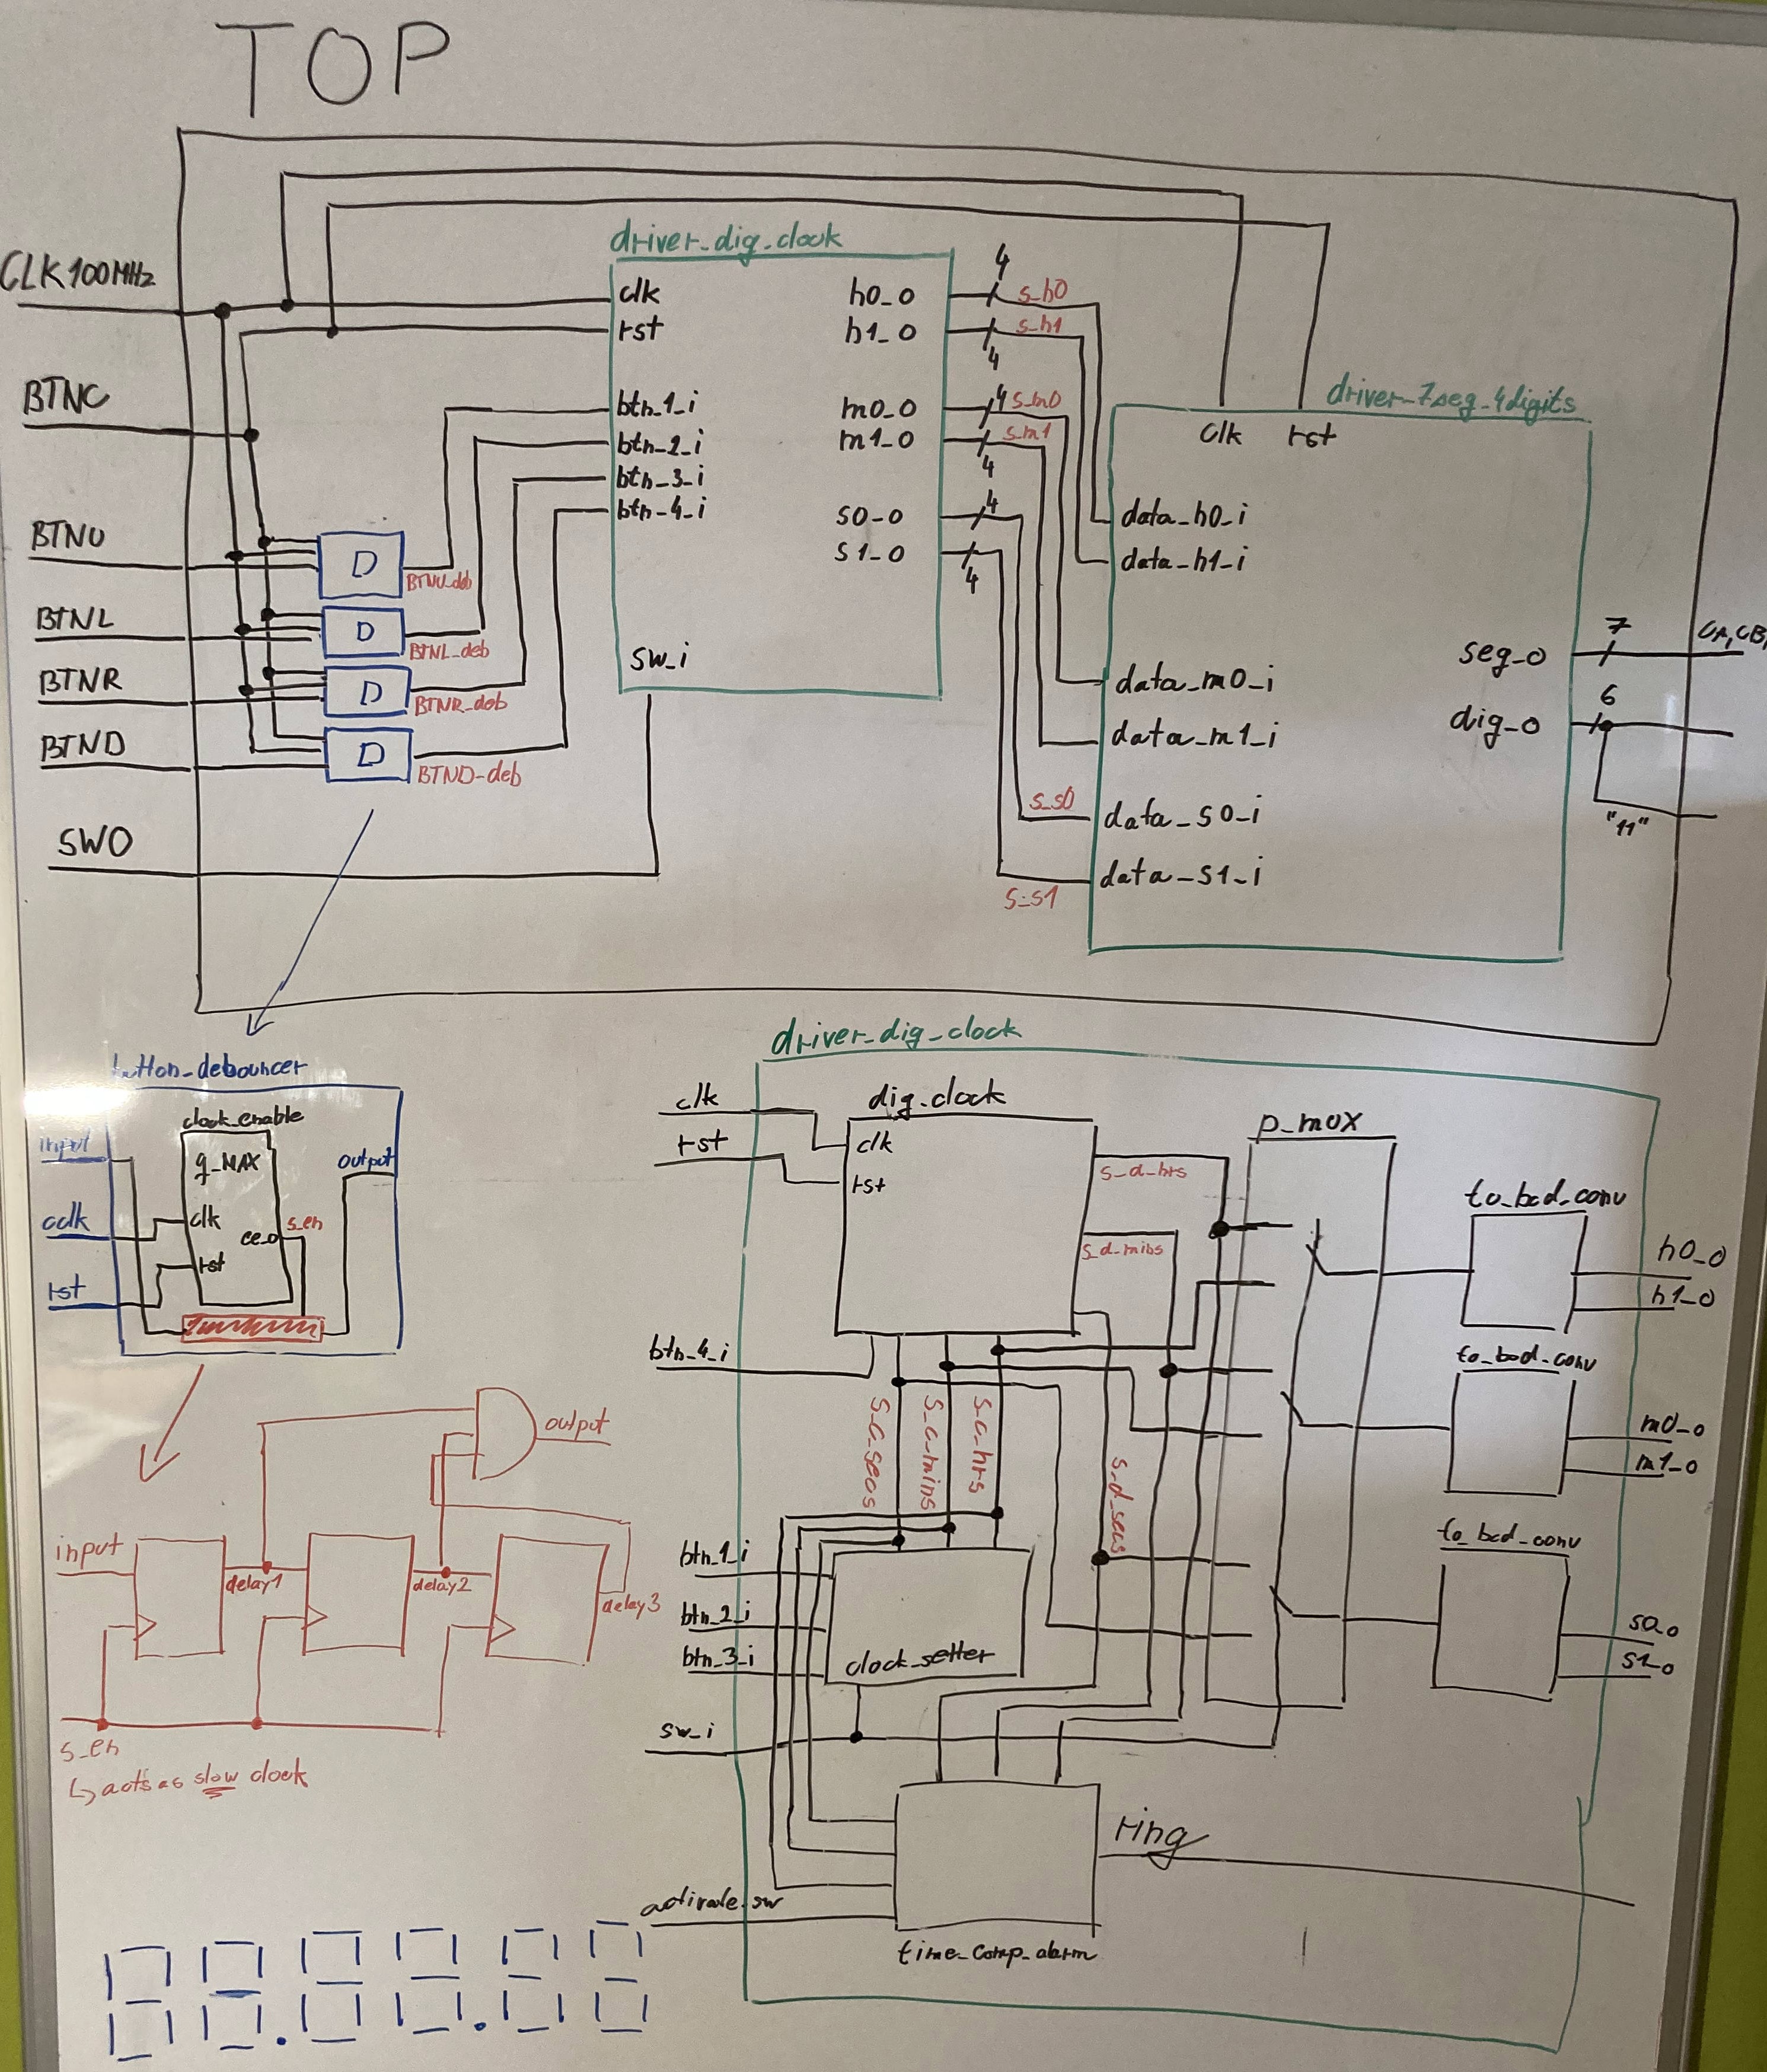 TOP
CLK100MHz
BTNC
BTNU
BTNL
BTNR
BTND
SW0
D
D
D
D
BTNU_deb
BTNL_deb
BTNR_deb
BTND-deb
driver_dig_clock
clk
rst
btn_1_i
btn_2_i
btn_3_i
btn_4_i
sw_i
h0_0
h1_0
m0_0
m1_0
s0_0
s1_0
4
s_h0
s_h1
4
4
s_m0
s_m1
4
4
4
s_s0
s_s1
driver_7seg_4digits
clk
rst
data_h0_i
data_h1_i
data_m0_i
data_m1_i
data_s0_i
data_s1_i
seg_0
dig_0
7
CA,CB,
6
"11"
button_debouncer
clock_enable
g_MAX
clk
rst
ce_0
s_en
input
rst
output
output
input
delay1
delay2
delay3
s_en
↳ acts as slow clock
driver_dig_clock
clk
rst
dig_clock
clk
rst
s_d_hrs
s_d_mins
btn_4_i
s_c_secs
s_c_mins
s_c_hrs
s_d_secs
btn_1_i
btn_2_i
btn_3_i
clock_setter
sw_i
activate_sw
ring
time_comp_alarm
p_mux
to_bcd_conv
h0_0
h1_0
to_bcd_conv
m0_0
m1_0
to_bcd_conv
s0_0
s1_0
88.88.88